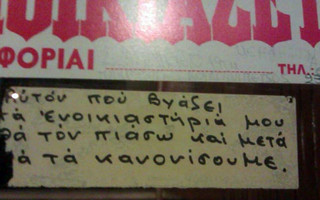 ΝΟΙΚΙΑΖΕΤ
ΦΟΡΙΑΙ ΤΗΛ.
Αυτόν πού Βγάζει
τά Ἐνοικιαστήριά μου
θά τόν πιάσω καί μετά
θά τά κανονίσουμε.